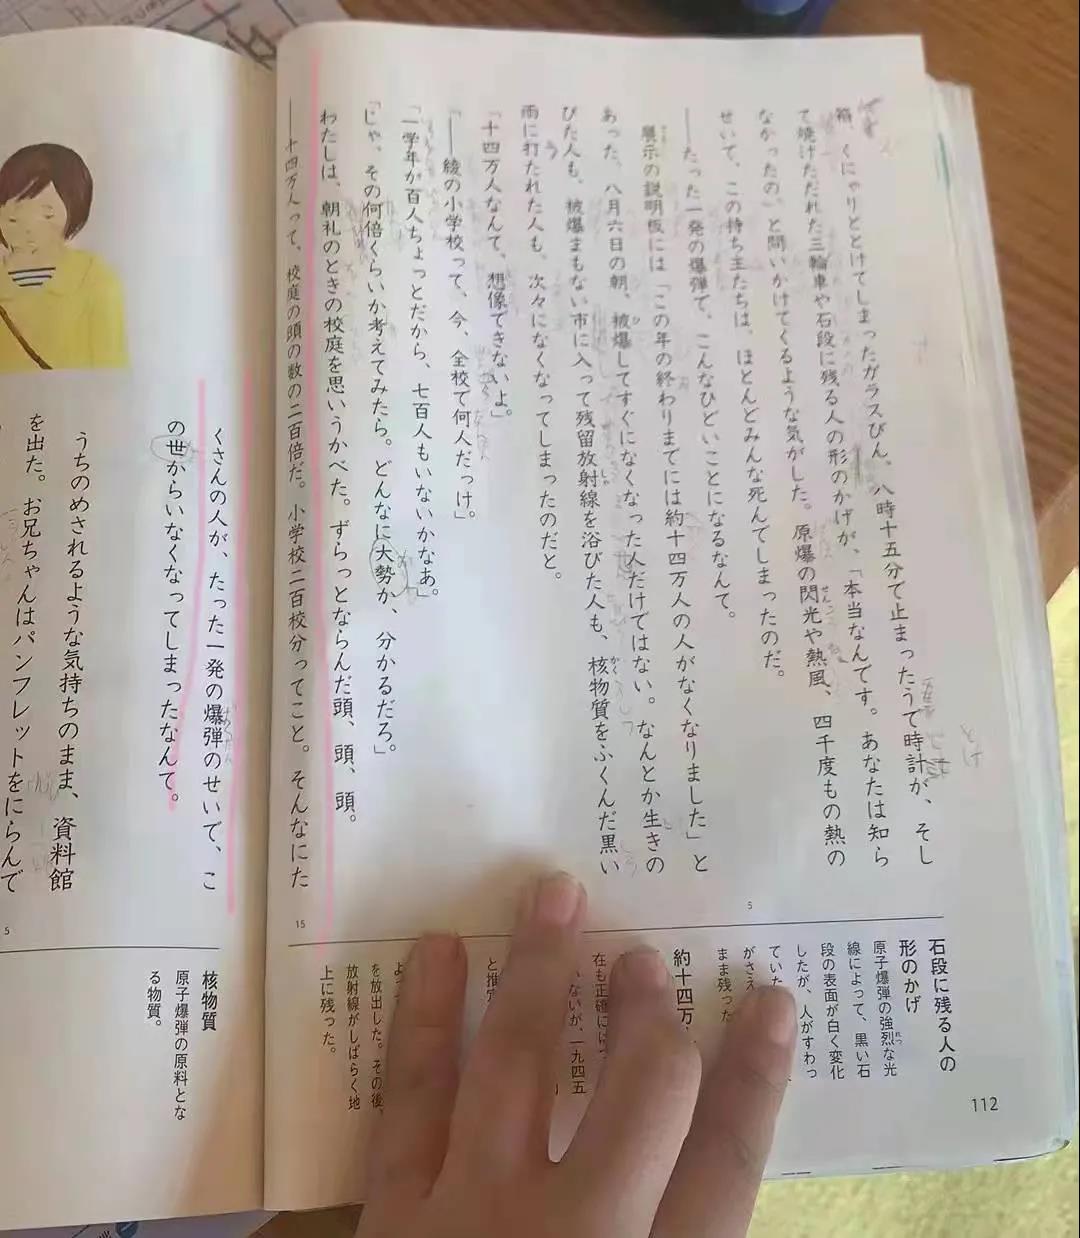 箱、くにゃりととけてしまったガラスびん、八時十五分で止まったうで時計が、そし
て焼けただれた三輪車や石段に残る人の形のかげが、「本当なんです。あなたは知ら
なかったの」と問いかけてくるような気がした。原爆の閃光や熱風、四千度もの熱の
せいで、この持ち主たちは、ほとんどみんな死んでしまったのだ。
――たった一発の爆弾で、こんなひどいことになるなんて。
展示の説明板には「この年の終わりまでには約十四万人の人がなくなりました」と
あった。八月六日の朝、被爆してすぐになくなった人だけではない。なんとか生きの
びた人も、被爆まもない市に入って残留放射線を浴びた人も、核物質をふくんだ黒い
雨に打たれた人も、次々になくなってしまったのだと。
「十四万人なんて、想像できないよ」
「――綾の小学校って、今、全校で何人だっけ」
「一学年が百人ちょっとだから、七百人もいないかなあ」
「じゃ、その何倍くらいか考えてみたら。どんなに大勢か、分かるだろ」
わたしは、朝礼のときの校庭を思いうかべた。ずらっとならんだ頭、頭、頭。
――十四万人って、校庭の頭の数の二百倍だ。小学校二百校分ってこと。そんなにた
5
15
石段に残る人の
形のかげ
原子爆弾の強烈な光
線によって、黒い石
段の表面が白く変化
したが、人がすわっ
ていた
がさえ
まま残った
約十四万
在も正確に
ないが、一九四五
と推定
を放出した。その後、
放射線がしばらく地
上に残った。
112
くさんの人が、たった一発の爆弾のせいで、こ
の世からいなくなってしまったなんて。
うちのめされるような気持ちのまま、資料館
を出た。お兄ちゃんはパンフレットをにらんで
5
核物質
原子爆弾の原料とな
る物質。